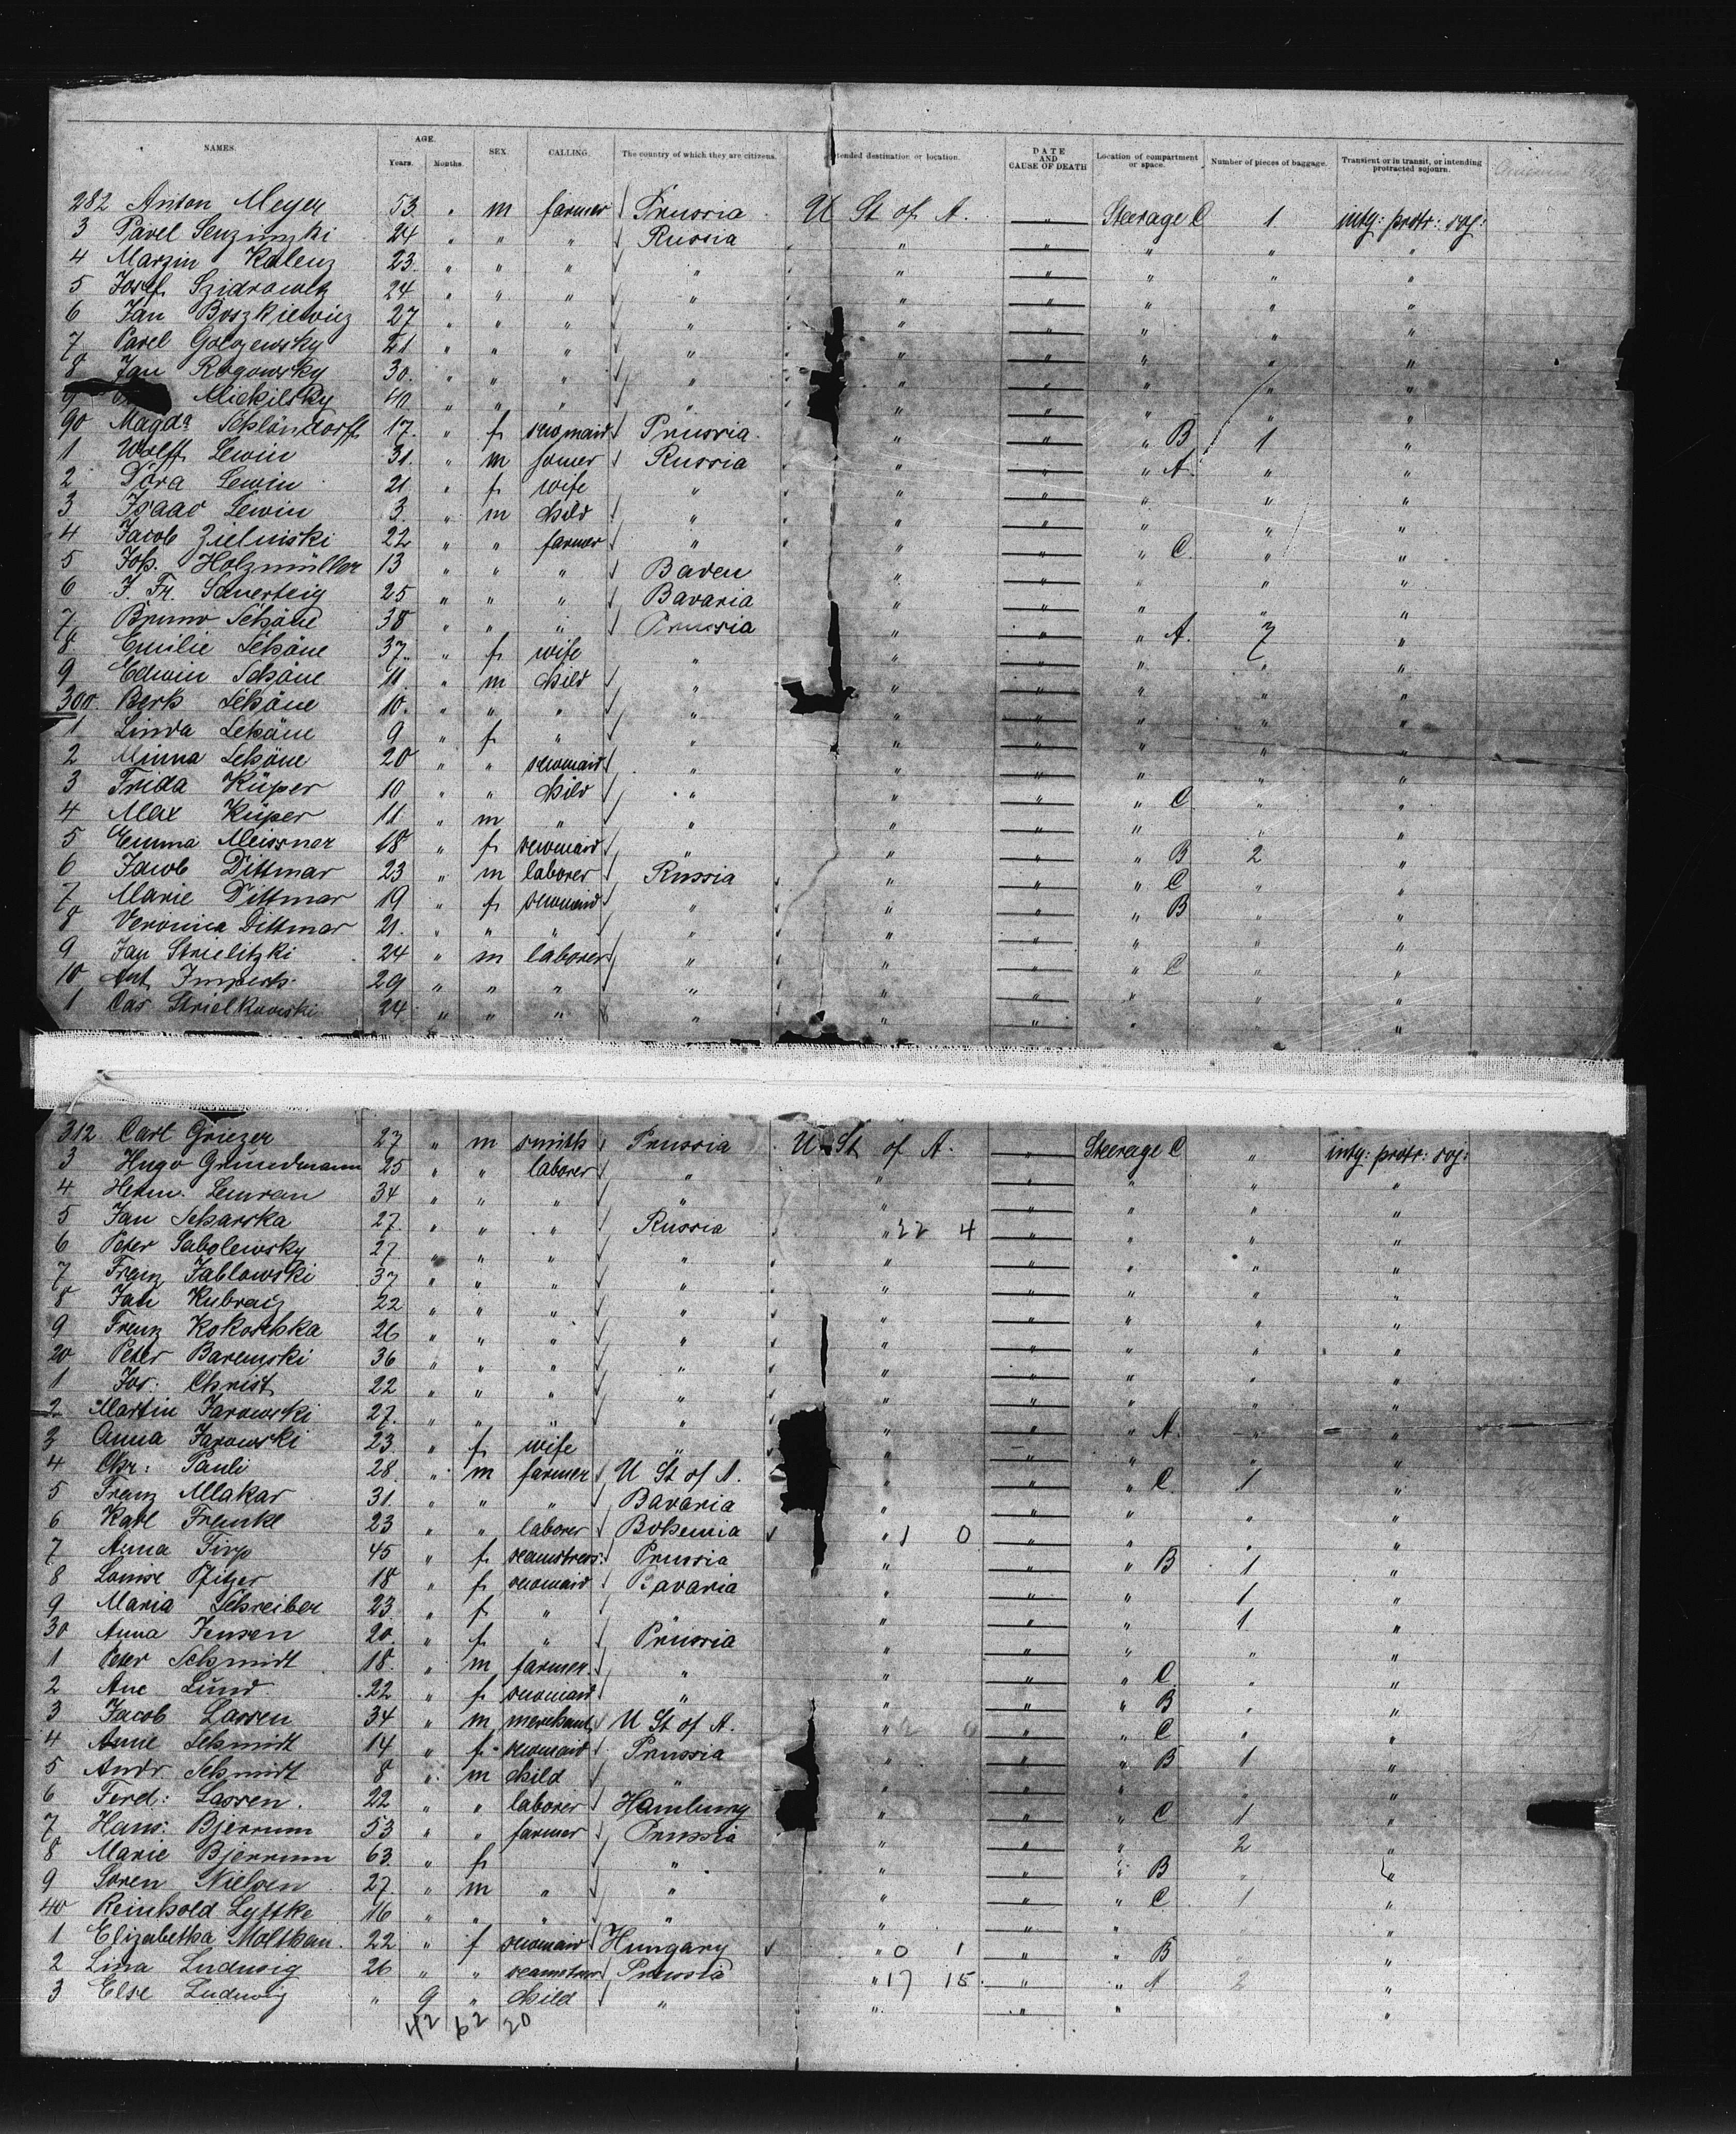 NAMES. AGE. Years. Months. SEX. CALLING. The country of which they are citizens. Intended destination or location. DATE AND CAUSE OF DEATH Location of compartment or space. Number of pieces of baggage. Transient or in transit, or intending protracted sojourn.
282 Anton Meyer 53 " m farmer Prussia U St of A. " Steerage C 1 intg: protr: soj:
3 Pavel 24 " " " Russia " " " " "
4 Marzin Kalenz 23 " " " " " " " " "
5 Josef Szidrowitz 24 " " " " " " " " "
6 Jan Boszkiewicz 27 " " " " " " " " "
7 Pavel Golozewsky 21 " " " " " " " " "
8 Jan Rogowsky 30 " " " " " " " " "
9 Mickilsky 40 " " " " " " " " "
90 Magda Schlöndorff 17 " f servmaid Prussia " " " B 1 "
1 Wolff Lewin 31 " m Russia " " " A " "
2 Dora Lewin 21 " f wife " " " " " "
3 Isaac Lewin 3 " m child " " " " " "
4 Jacob Zielinski 22 " " farmer " " " " C " "
5 Joh. Holzmüller 13 " " " Baden " " " " "
6 J. Fr. Sauerteig 25 " " " Bavaria " " " " "
7 Bruno Schöne 38 " " " Prussia " " " A 7 "
8 Emilie Schöne 37 " f wife " " " " " "
9 Edwin Schöne 11 " m child " " " " " "
300 Berth Schöne 10 " " " " " " " " "
1 Linda Schöne 9 " f " " " " " " "
2 Minna Schöne 20 " " servmaid " " " " " "
3 Frida Küper 10 " " child " " " " C " "
4 Max Küper 11 " m " " " " " " "
5 Emma Meissner 18 " f servmaid " " " " B 2 "
6 Jacob Dittmar 23 " m laborer Russia " " " C " "
7 Marie Dittmar 19 " f servmaid " " " " B " "
8 Veronica Dittmar 21 " " " " " " " " "
9 Jan Strielitzki 24 " m laborer " " " " C " "
10 Ant. 29 " " " " " " " " "
1 Cas Strielkowski 24 " " " " " " " " "
312 Carl Griezer 27 " m smith Prussia U St of A. " Steerage C " intg: protr: soj:
3 Hugo Grunedmann 25 " " laborer " " " " " "
4 Herm. 34 " " " " " " " " "
5 Jan Scharska 27 " " " Russia " 22 4 " " " "
6 Peter Sabolewsky 27 " " " " " " " " "
7 Franz Jablowski 37 " " " " " " " " "
8 Jan Kubraiz 22 " " " " " " " " "
9 Franz Kokoschka 26 " " " " " " " " "
20 Peter Baremski 36 " " " " " " " " "
1 Jos: Christ 22 " " " " " " " " "
2 Martin Jarowski 27 " " " " " " " A " "
3 Anna Jarowski 23 " f wife " " " " " "
4 Chr: Pauli 28 " m farmer U St of A. " " " C 1 "
5 Franz Makar 31 " " " Bavaria " " " " "
6 Karl Frenkl 23 " " laborer Bohemia " 1 0 " " " "
7 Anna Firp 45 " f seamstress: Prussia " " " B 1 "
8 Louise Pfitzer 18 " f servmaid Bavaria " " " 1 "
9 Maria Schreiber 23 " f " " " " " 1 "
30 Anna Jensen 20 " f " Prussia " " " " "
1 Peter Schmidt 18 " m farmer " " " " C " "
2 Ane Lund 22 " f servmaid " " " " B " "
3 Jacob Lassen 34 " m merchant U St of A. " 2 0 " " C " "
4 Anne Schmidt 14 " f servmaid Prussia " " " B 1 "
5 Andr Schmidt 8 " m child " " " " " "
6 Ferd: Lassen 22 " " laborer Hamburg " " " C 1 "
7 Hans: Bjerrum 53 " " farmer Prussia " " " 2 "
8 Marie Bjerrum 63 " f " " " " B " "
9 Soren Nielsen 27 " m " " " " " C 1 "
40 Reinhold Lyttke 16 " " " " " " " " "
1 Elizabetha Molthan 22 " f servmaid Hungary " 0 1 " " B "
2 Lina Ludwig 26 " " seamstress Prussia " 17 15 " " A 2 "
3 Else Ludwig " 9 " child " " " " "
42 62 20